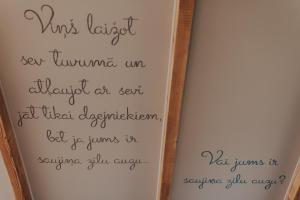 Viņš laižot
sev tuvumā un
atļaujot ar sevi
jāt tikai dzejniekiem,
bet ja jums ir
saujiņa zilu augu...
Vai jums ir
saujiņa zilu augu?